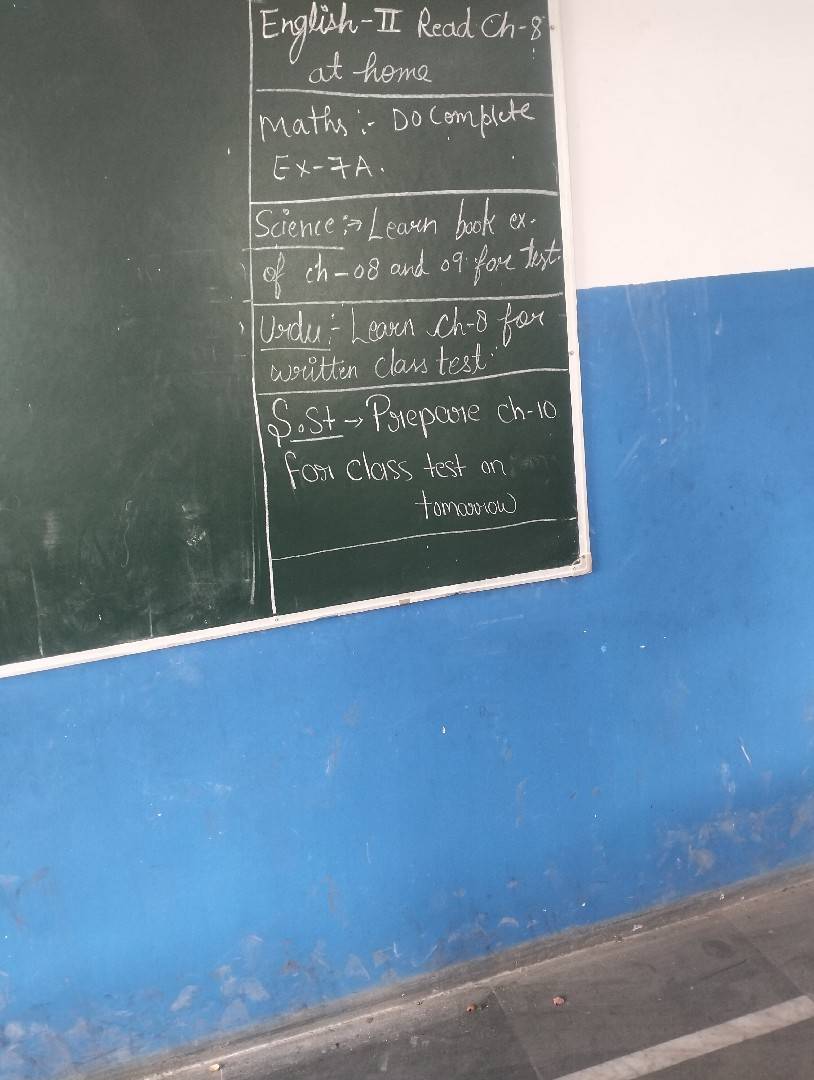 English-II Read Ch-8
at home
Maths:- Do Complete
Ex-7A.
Science:→ Learn book ex.
of ch-08 and 09 for test.
Urdu:- Learn Ch-8 for
written class test.
S.St → Prepare ch-10
for class test on
tomarrow